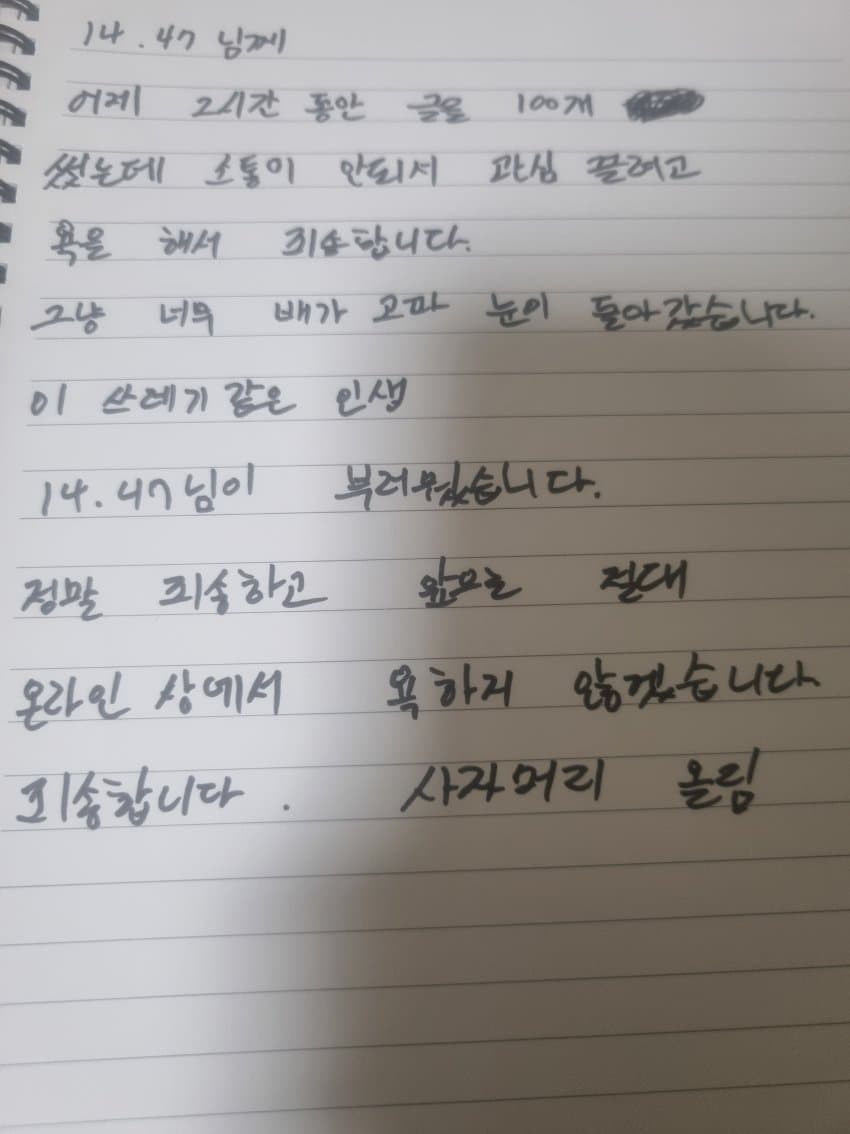 14.47 님께
어제 2시간 동안 글을 100개
썼는데 소통이 안되서 관심 끌려고
욕을 해서 죄송합니다.
그냥 너무 배가 고파 눈이 돌아갔습니다.
이 쓰레기같은 인생
14.47님이 부러웠습니다.
정말 죄송하고 앞으로 절대
온라인 상에서 욕하지 않겠습니다.
죄송합니다. 사자머리 올림